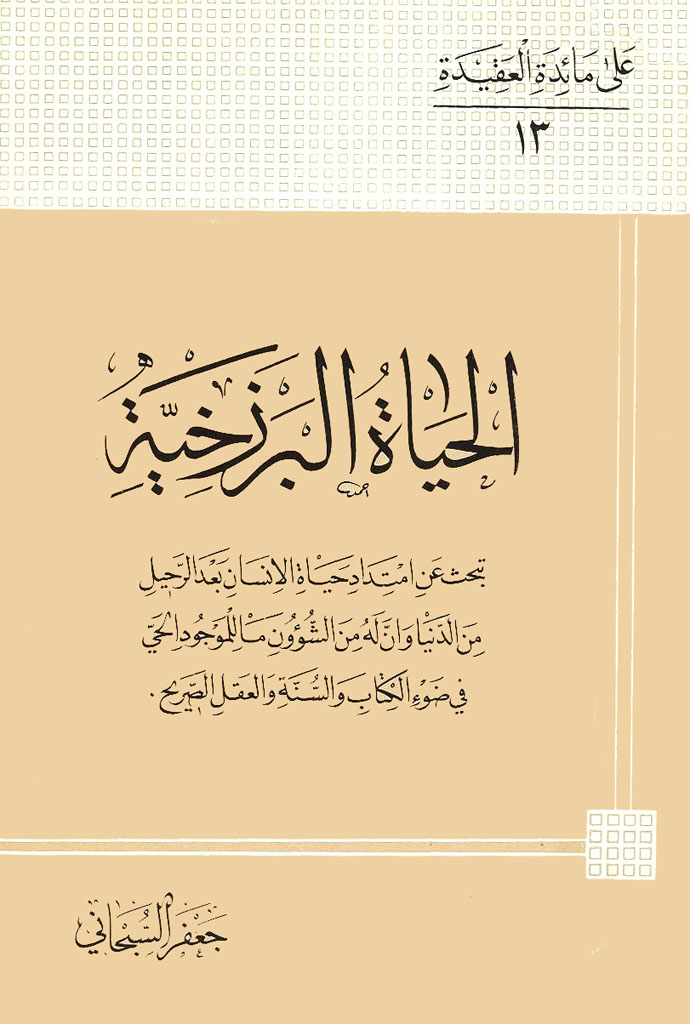 عَلىٰ مَائِدَةِ الْعَقِيْدَةِ
١٣
الحَيَاةُ البَرْزَخِيَّةِ
تبحث عَنِ امْتِدَادِ حَيَاةِ الاِنسَانِ بَعْدَ الرَّحِيلِ
مِنَ الدُّنْيَا وَانَّ لَهُ مِنَ الشُّؤُونِ مَا لِلْمَوْجُودِ الحَيِّ
في ضَوْءِ الكِتَابِ وَالسُّنَّةِ وَالعَقلِ الصَّرِيحِ .
جَعْفَر السُّبْحَاني